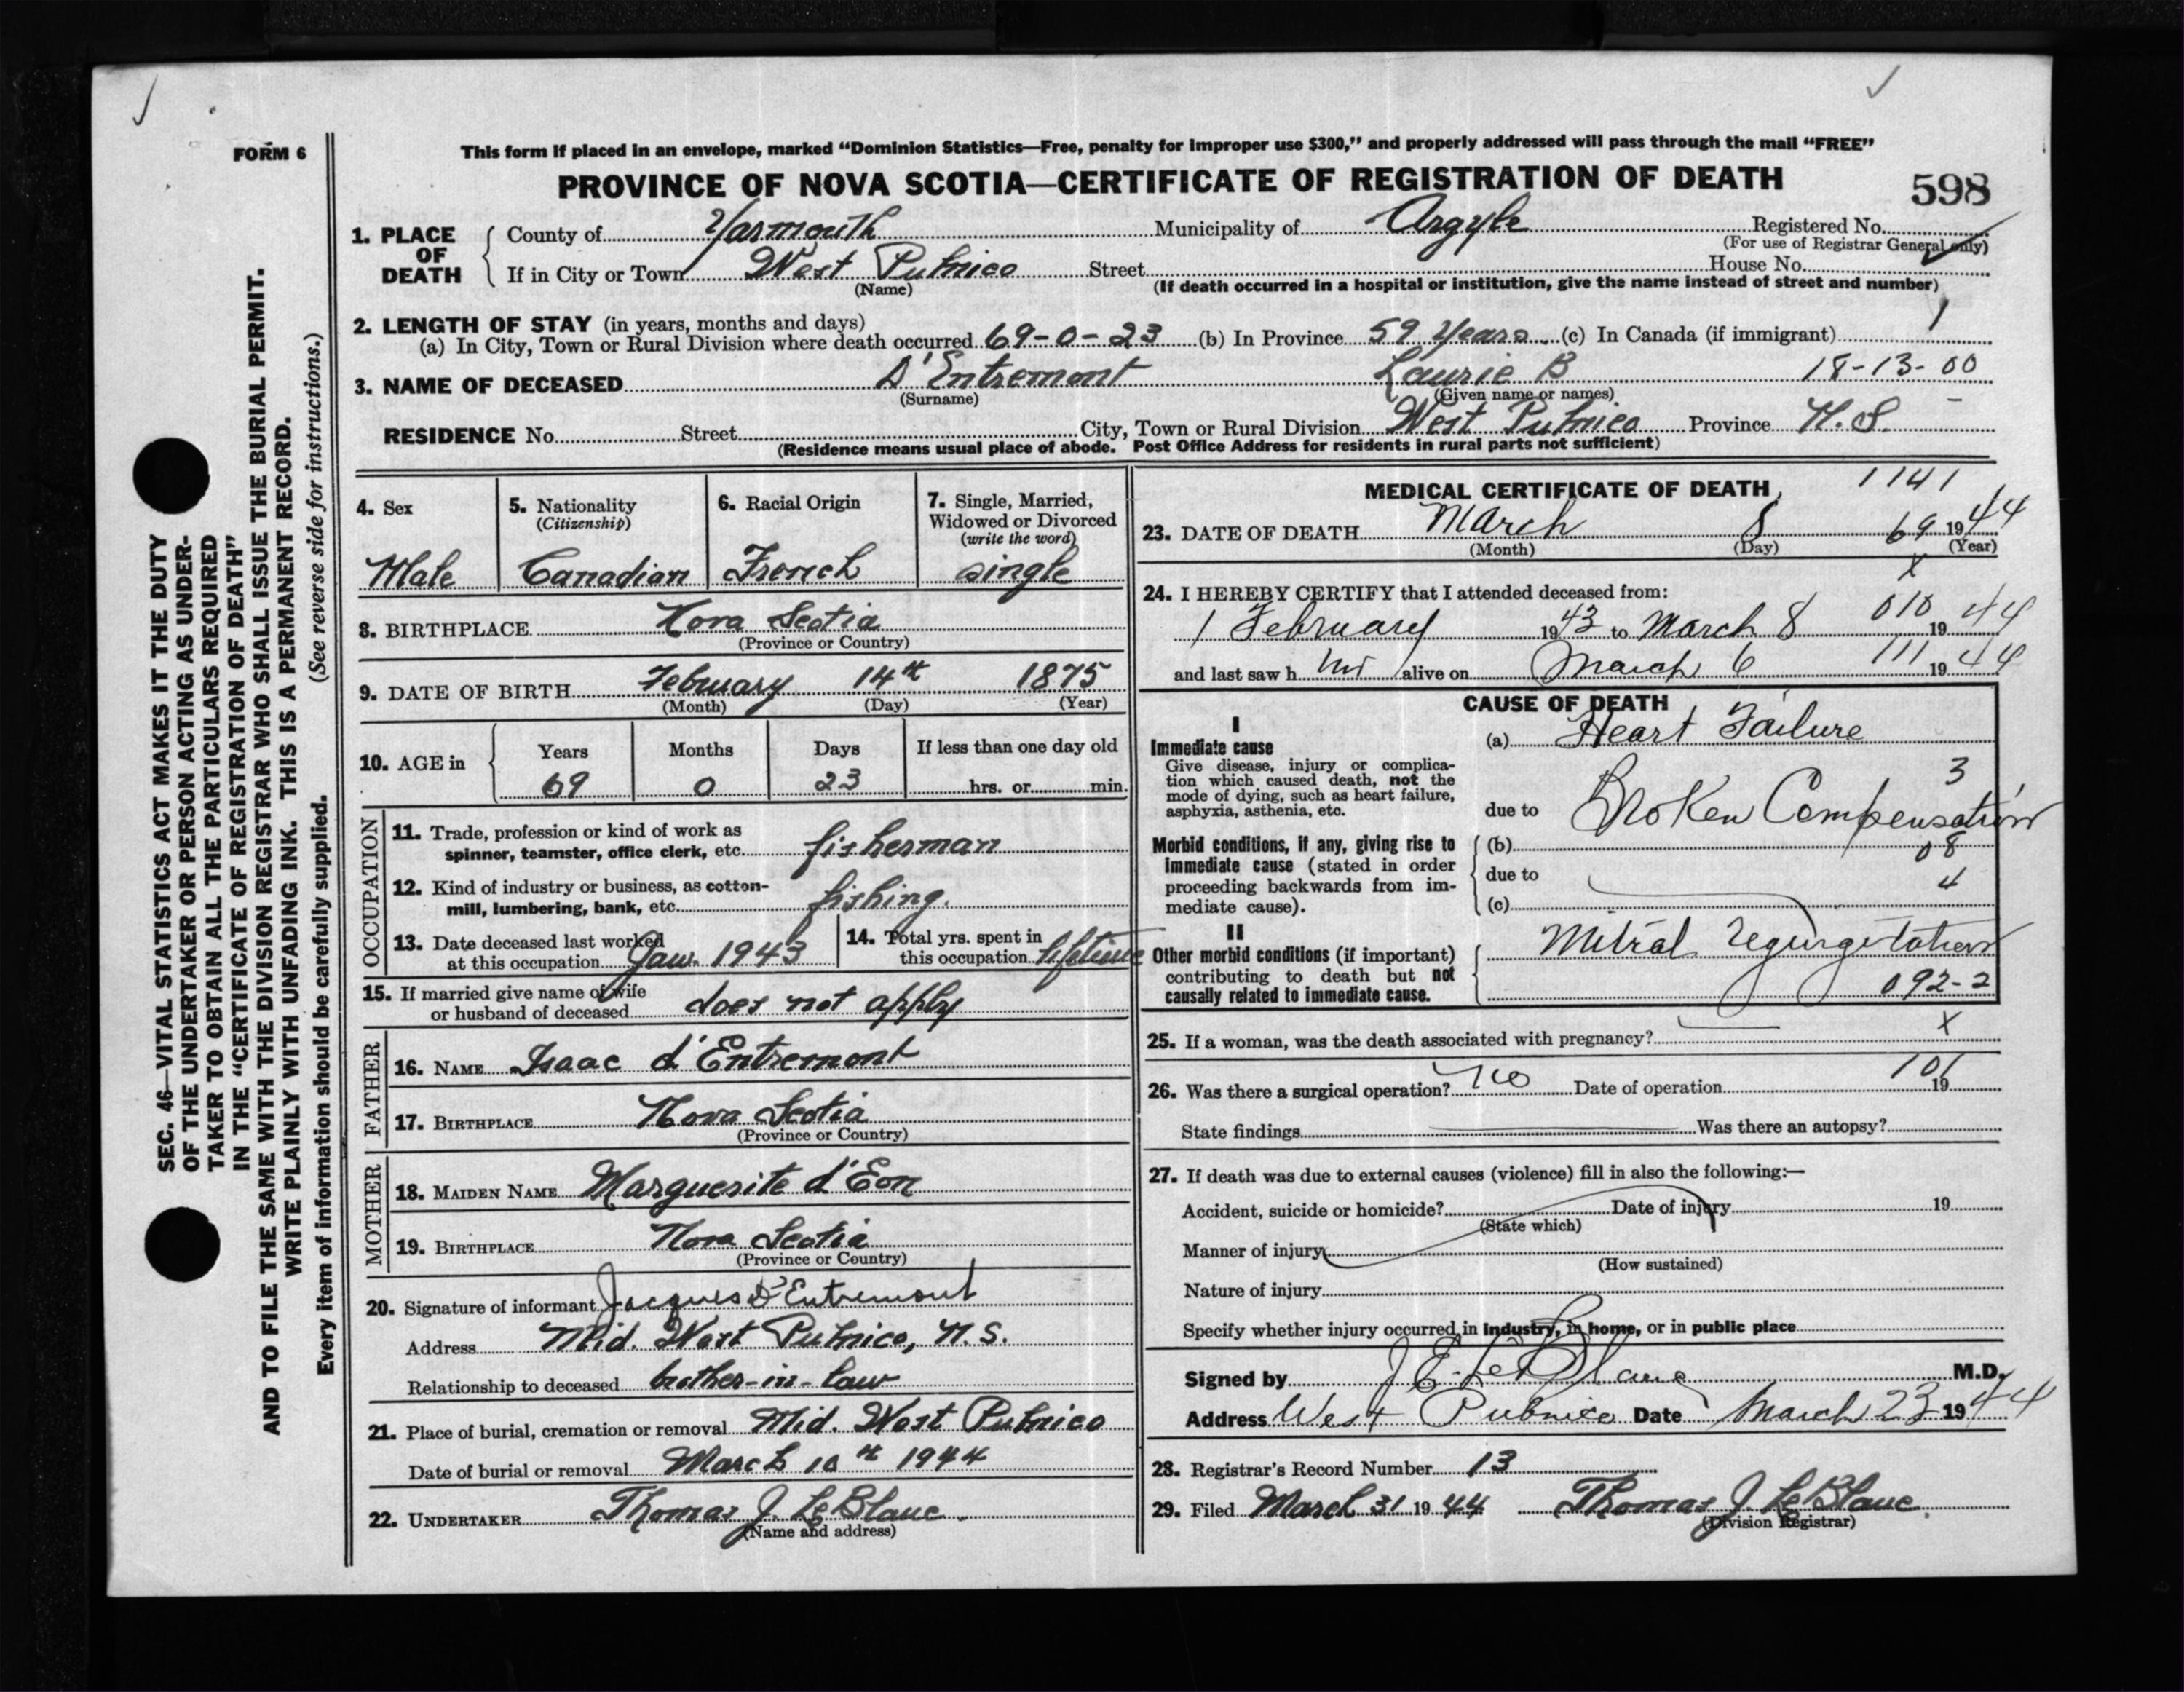 FORM 6
This form if placed in an envelope, marked “Dominion Statistics—Free, penalty for improper use $300,” and properly addressed will pass through the mail “FREE”
PROVINCE OF NOVA SCOTIA—CERTIFICATE OF REGISTRATION OF DEATH
598
1. PLACE OF DEATH
County of Yarmouth Municipality of Argyle Registered No.
(For use of Registrar General only)
If in City or Town West Pubnico Street House No.
(Name) (If death occurred in a hospital or institution, give the name instead of street and number)
2. LENGTH OF STAY (in years, months and days)
(a) In City, Town or Rural Division where death occurred 69-0-23 (b) In Province 59 Years (c) In Canada (if immigrant) 1
3. NAME OF DECEASED D'Entremont Laurie B 18-13-00
(Surname) (Given name or names)
RESIDENCE No. Street City, Town or Rural Division West Pubnico Province N.S.
(Residence means usual place of abode. Post Office Address for residents in rural parts not sufficient)
4. Sex
Male
5. Nationality
(Citizenship)
Canadian
6. Racial Origin
French
7. Single, Married,
Widowed or Divorced
(write the word)
single
8. BIRTHPLACE Nova Scotia
(Province or Country)
9. DATE OF BIRTH February 14th 1875
(Month) (Day) (Year)
10. AGE in Years Months Days If less than one day old
69 0 23 hrs. or min.
OCCUPATION
11. Trade, profession or kind of work as
spinner, teamster, office clerk, etc. fisherman
12. Kind of industry or business, as cotton-
mill, lumbering, bank, etc. fishing.
13. Date deceased last worked
at this occupation Jan. 1943
14. Total yrs. spent in
this occupation lifetime
15. If married give name of wife
or husband of deceased does not apply
FATHER
16. NAME Isaac d'Entremont
17. BIRTHPLACE Nova Scotia
(Province or Country)
MOTHER
18. MAIDEN NAME Marguerite d'Eon
19. BIRTHPLACE Nova Scotia
(Province or Country)
20. Signature of informant Jacques D'Entremont
Address Mid. West Pubnico, N.S.
Relationship to deceased brother-in-law
21. Place of burial, cremation or removal Mid. West Pubnico
Date of burial or removal March 10th 1944
22. UNDERTAKER Thomas J. LeBlanc.
(Name and address)
MEDICAL CERTIFICATE OF DEATH 1141
23. DATE OF DEATH March 8 69 1944
(Month) (Day) (Year)
x
24. I HEREBY CERTIFY that I attended deceased from:
1 February 1943 to March 8 010 1944
and last saw him alive on March 6 111 1944
CAUSE OF DEATH
I
Immediate cause
Give disease, injury or complica-
tion which caused death, not the
mode of dying, such as heart failure,
asphyxia, asthenia, etc.
(a) Heart Failure
3
due to Broken Compensation
Morbid conditions, if any, giving rise to
immediate cause (stated in order
proceeding backwards from im-
mediate cause).
(b) 08
due to 4
(c)
II
Other morbid conditions (if important)
contributing to death but not
causally related to immediate cause.
Mitral regurgitation
092-2
25. If a woman, was the death associated with pregnancy? x
26. Was there a surgical operation? no Date of operation 101 19
State findings Was there an autopsy?
27. If death was due to external causes (violence) fill in also the following:—
Accident, suicide or homicide? Date of injury 19
(State which)
Manner of injury
(How sustained)
Nature of injury
Specify whether injury occurred in industry, in home, or in public place
Signed by J E. LeBlanc M.D.
Address West Pubnico Date March 23 1944
28. Registrar's Record Number 13
29. Filed March 31 1944 Thomas J. LeBlanc.
(Division Registrar)
SEC. 46—VITAL STATISTICS ACT MAKES IT THE DUTY
OF THE UNDERTAKER OR PERSON ACTING AS UNDER-
TAKER TO OBTAIN ALL THE PARTICULARS REQUIRED
IN THE “CERTIFICATE OF REGISTRATION OF DEATH”
AND TO FILE THE SAME WITH THE DIVISION REGISTRAR WHO SHALL ISSUE THE BURIAL PERMIT.
WRITE PLAINLY WITH UNFADING INK. THIS IS A PERMANENT RECORD.
Every item of information should be carefully supplied. (See reverse side for instructions.)